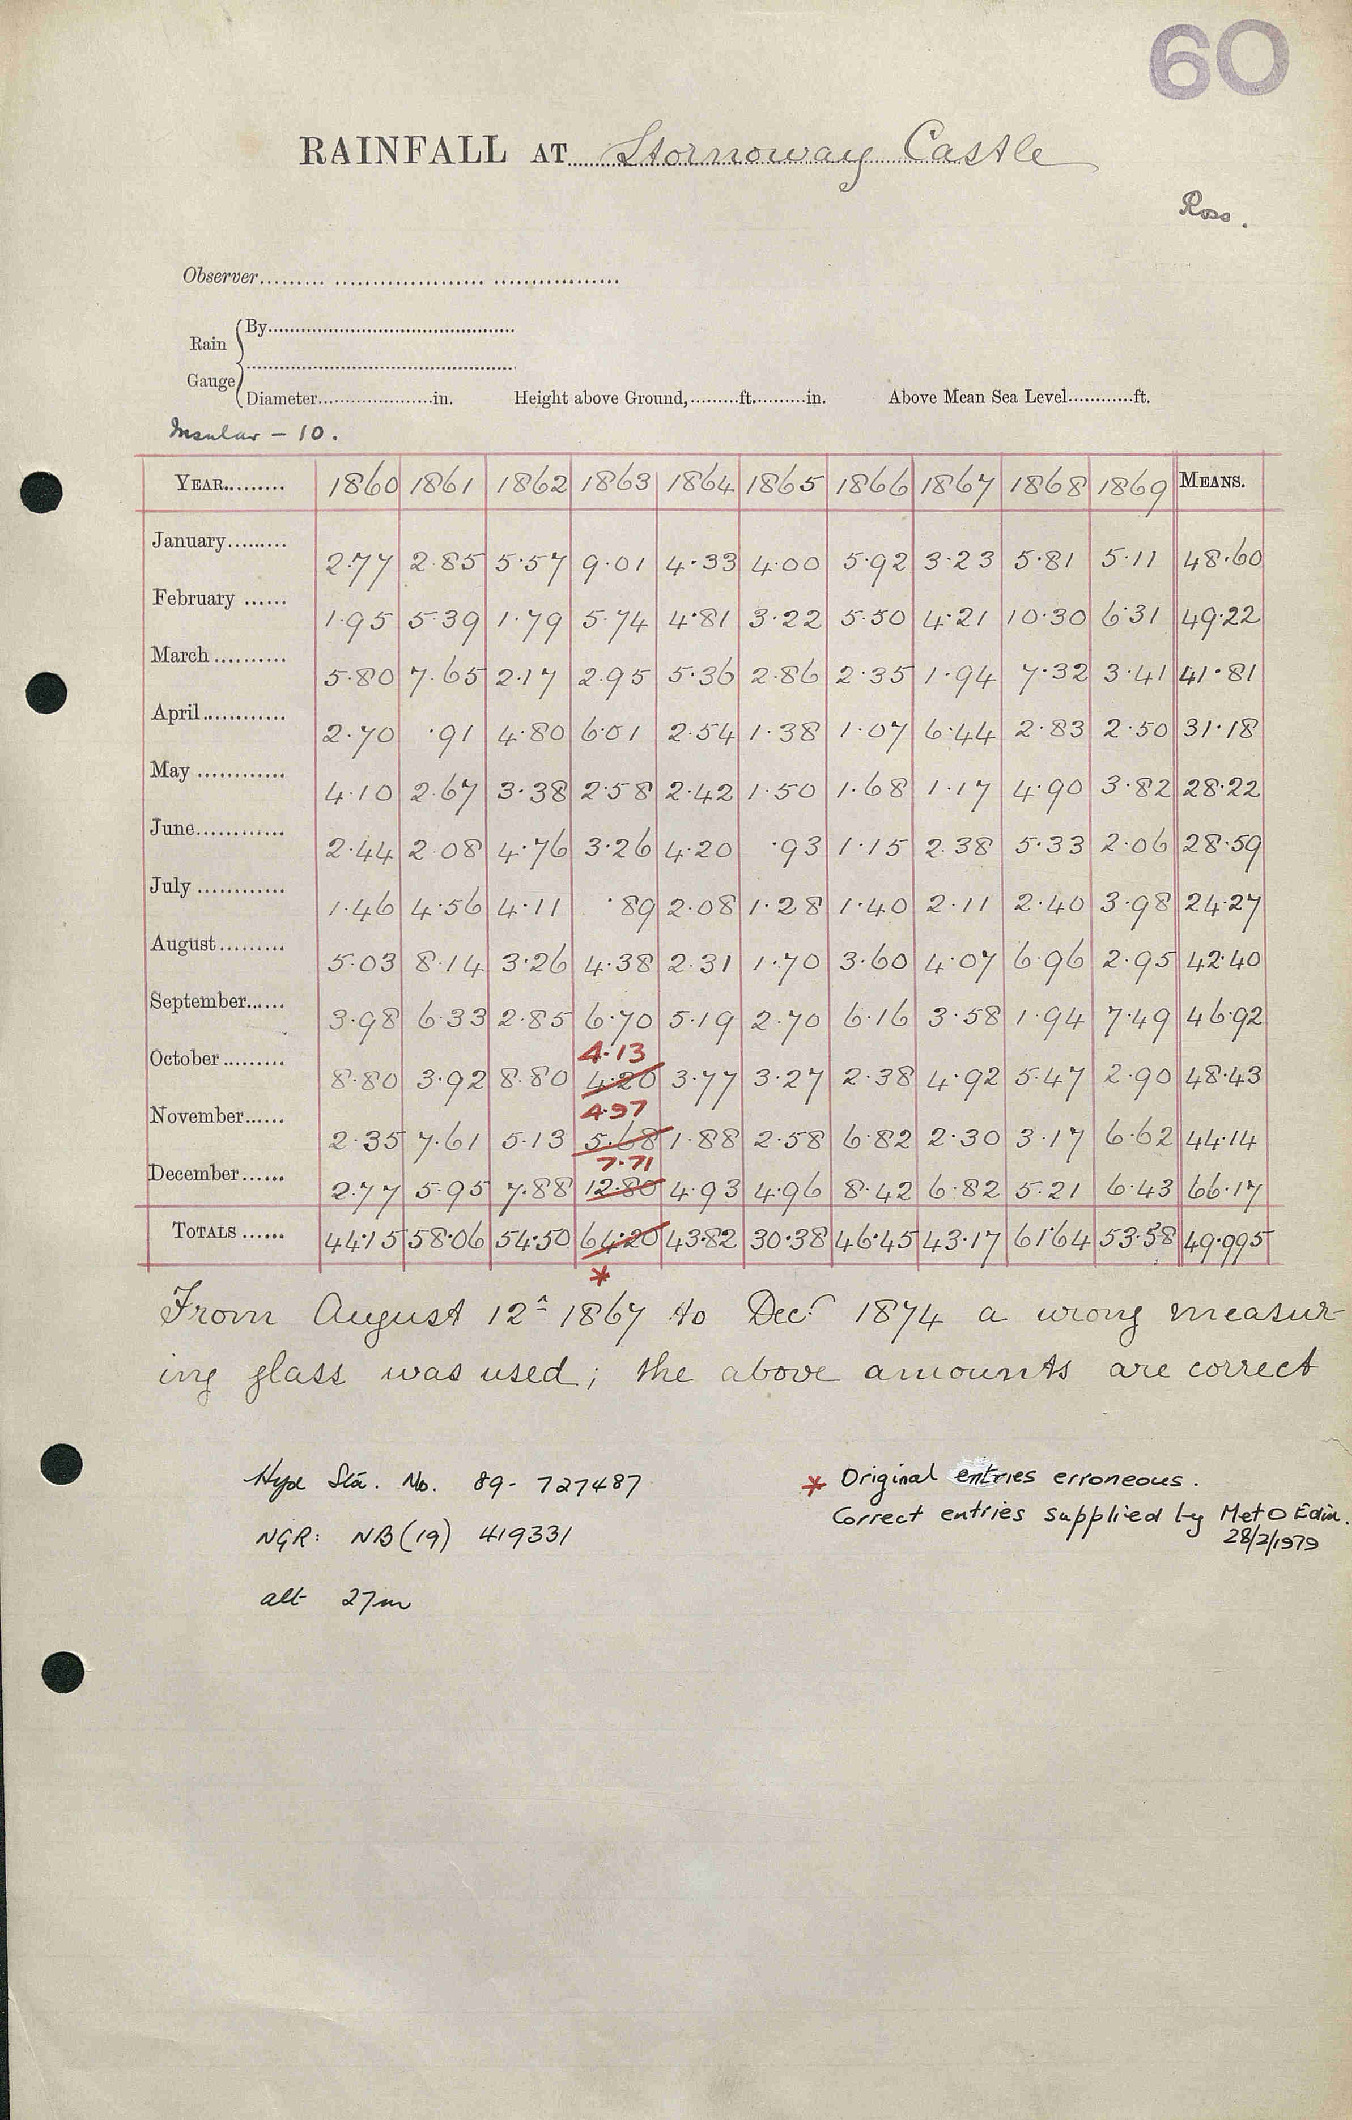 60
RAINFALL AT Stornoway Castle
Ross.
Observer
Rain Gauge { By
Diameter in. Height above Ground, ft. in. Above Mean Sea Level ft.
Insular – 10.
YEAR 1860 1861 1862 1863 1864 1865 1866 1867 1868 1869 MEANS.
January 2.77 2.85 5.57 9.01 4.33 4.00 5.92 3.23 5.81 5.11 48.60
February 1.95 5.39 1.79 5.74 4.81 3.22 5.50 4.21 10.30 6.31 49.22
March 5.80 7.65 2.17 2.95 5.36 2.86 2.35 1.94 7.32 3.41 41.81
April 2.70 .91 4.80 6.01 2.54 1.38 1.07 6.44 2.83 2.50 31.18
May 4.10 2.67 3.38 2.58 2.42 1.50 1.68 1.17 4.90 3.82 28.22
June 2.44 2.08 4.76 3.26 4.20 .93 1.15 2.38 5.33 2.06 28.59
July 1.46 4.56 4.11 .89 2.08 1.28 1.40 2.11 2.40 3.98 24.27
August 5.03 8.14 3.26 4.38 2.31 1.70 3.60 4.07 6.96 2.95 42.40
September 3.98 6.33 2.85 6.70 5.19 2.70 6.16 3.58 1.94 7.49 46.92
4.13
October 8.80 3.92 8.80 4.20 3.77 3.27 2.38 4.92 5.47 2.90 48.43
4.97
November 2.35 7.61 5.13 5.68 1.88 2.58 6.82 2.30 3.17 6.62 44.14
7.71
December 2.77 5.95 7.88 12.80 4.93 4.96 8.42 6.82 5.21 6.43 66.17
TOTALS 44.15 58.06 54.50 64.20 43.82 30.38 46.45 43.17 61.64 53.58 49.995
*
From August 12th 1867 to Decr 1874 a wrong measur-
ing glass was used; the above amounts are correct
Hyd Sta. No. 89- 727487
NGR: NB (19) 419331
alt 27m
* Original entries erroneous.
Correct entries supplied by Met O Edin.
28/2/1979